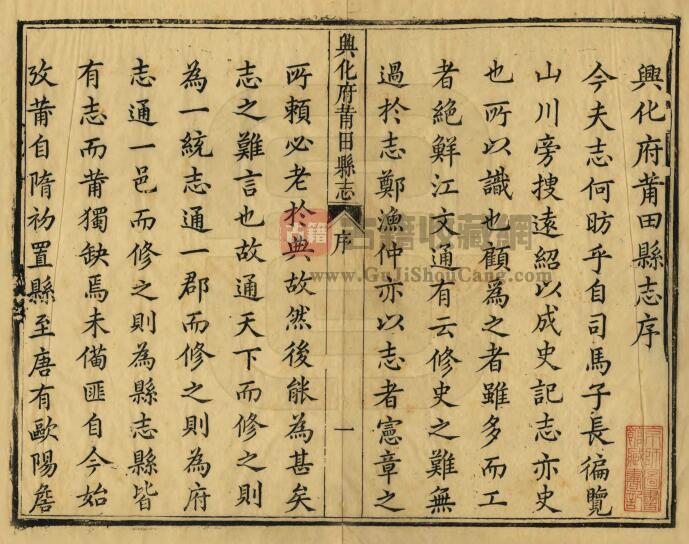 興化府莆田縣志序
今夫志何昉乎自司馬子長徧覽
山川旁搜遠紹以成史記志亦史
也所以識也顧為之者雖多而工
者絕鮮江文通有云修史之難無
過於志鄭漁仲亦以志者憲章之
興化府莆田縣志
序
一
所賴必老於典故然後能為甚矣
志之難言也故通天下而修之則
為一統志通一郡而修之則為府
志通一邑而修之則為縣志縣皆
有志而莆獨缺焉未備匪自今始
攷莆自隋初置縣至唐有歐陽詹
古籍
古籍收藏網
www.GuJiShouCang.com